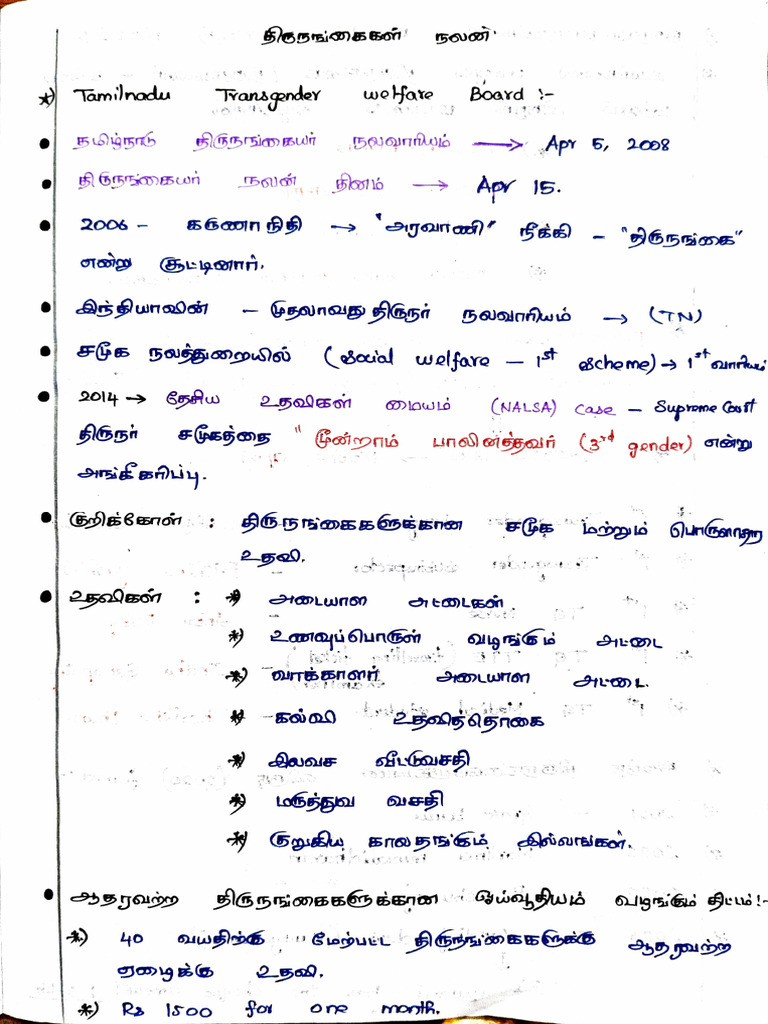 திருநங்கைகள் நலன்
*) Tamilnadu Transgender welfare Board :-
• தமிழ்நாடு திருநங்கையர் நலவாரியம் → Apr 5, 2008
• திருநங்கையர் நலன் தினம் → Apr 15.
• 2006 - கருணாநிதி → "அரவாணி" நீக்கி - "திருநங்கை"
என்று சூட்டினார்.
• இந்தியாவின் - முதலாவது திருநர் நலவாரியம் → (TN)
• சமூக நலத்துறையில் (Social welfare - 1st Scheme) → 1st வாரியம்
• 2014 → தேசிய உதவிகள் மையம் (NALSA) Case - Supreme Court
திருநர் சமூகத்தை "மூன்றாம் பாலினத்தவர் (3rd gender) என்று
அங்கீகரிப்பு.
• குறிக்கோள் : திருநங்கைகளுக்கான சமூக மற்றும் பொருளாதார
உதவி.
• உதவிகள் : *) அடையாள அட்டைகள்
*) உணவுப்பொருள் வழங்கும் அட்டை
*) வாக்காளர் அடையாள அட்டை.
*) கல்வி உதவித்தொகை
*) இலவச வீட்டுவசதி
*) மருத்துவ வசதி
*) குறுகிய காலதங்கும் இல்லங்கள்.
• ஆதரவற்ற திருநங்கைகளுக்கான ஓய்வூதியம் வழங்கும் திட்டம் :-
*) 40 வயதிற்கு மேற்பட்ட திருநங்கைகளுக்கு ஆதரவற்ற
ஏழைக்கு உதவி.
*) Rs 1500 for one month.